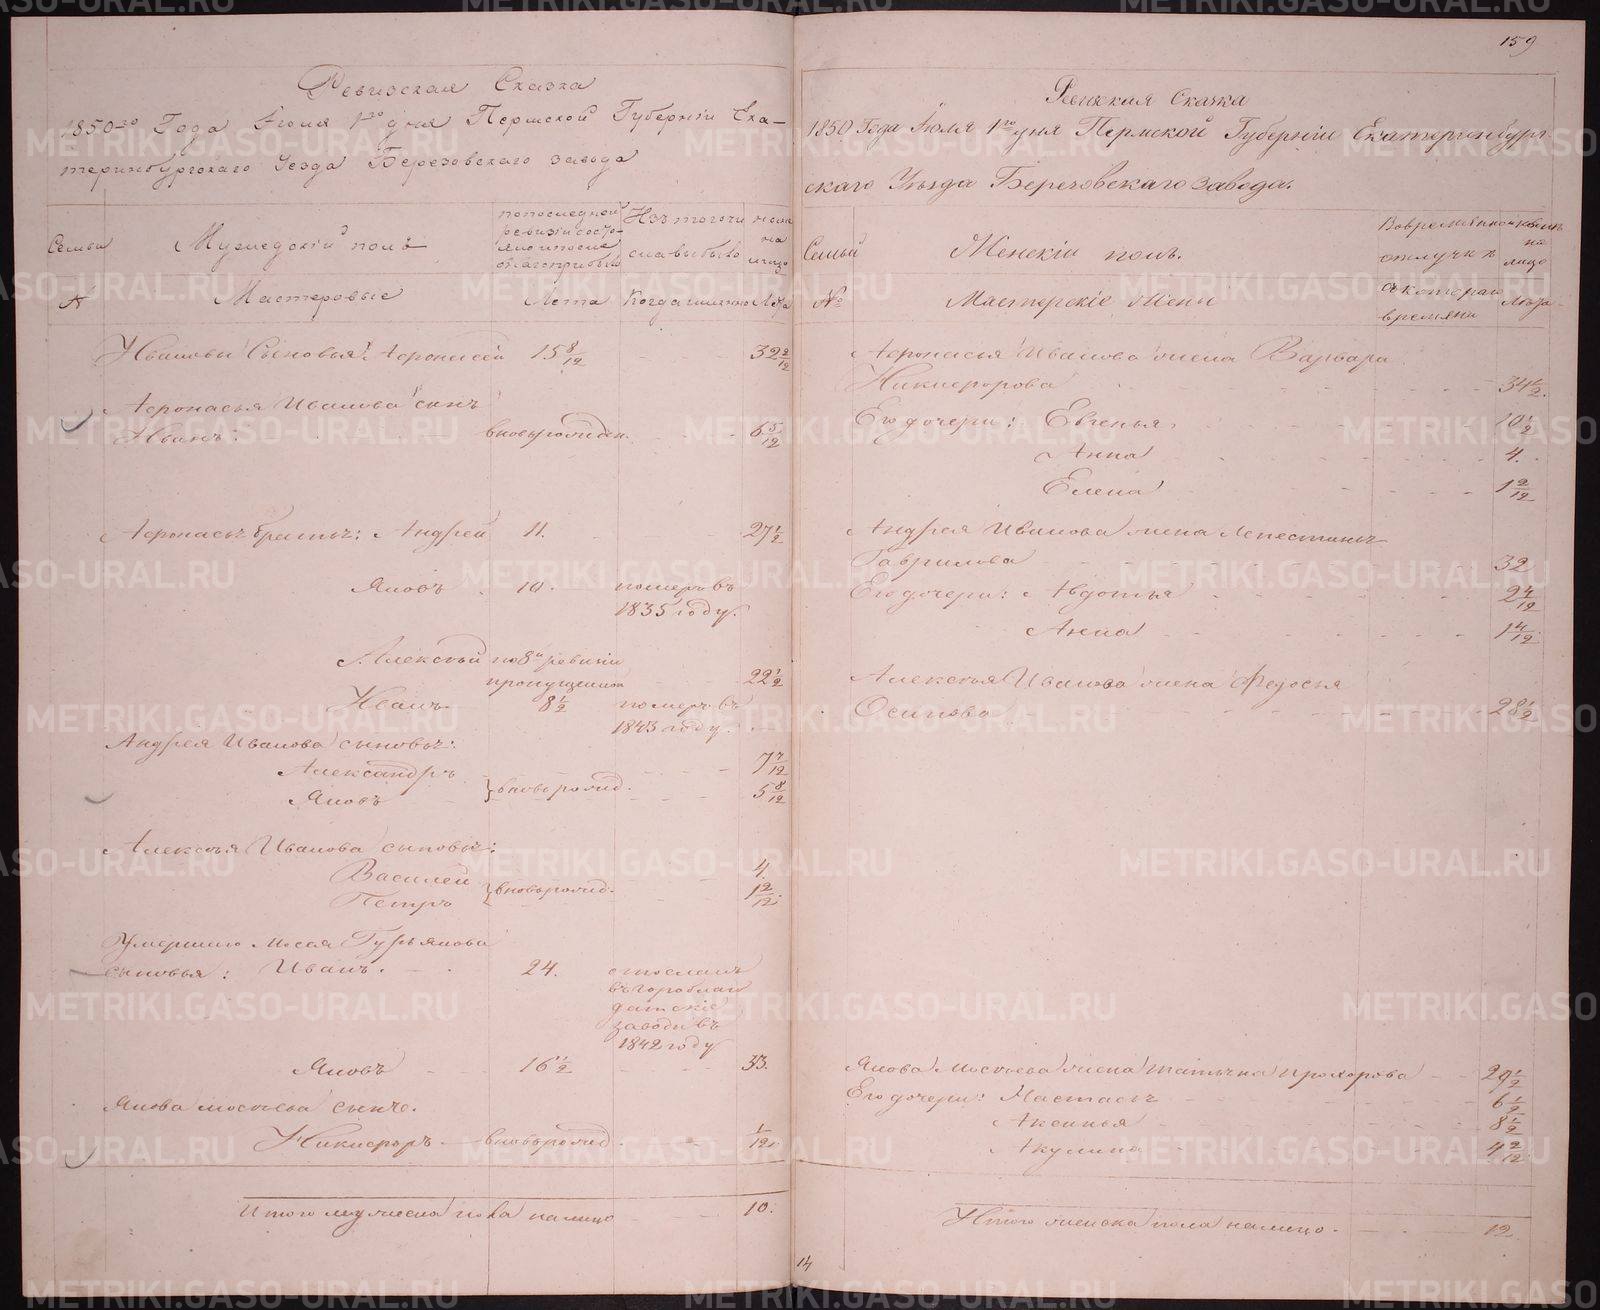 159
Ревизская Сказка
1850го Года Июля 1го дня Пермской Губерніи Ека-
теринбургскаго Уезда Березовскаго завода
Семьи
Мужескій полъ
по последней ревизіи состояло и после
Изъ того чи
сла выбыло
ныне на лицо
№
Мастеровые
Лета
Когда именно
Лета
Ивановы Сыновья: Афонасей 15 8/12 32 2/12
Афонасья Иванова сынъ
Иванъ: вновьрожден. 6 5/12
Афонасья братья: Андрей 11. 27 1/2
Яковъ 10. померъ въ
1835 году.
Алексѣй по 8й ревизіи
пропущенъ 22 1/2
Иванъ 8 1/2 померъ въ
1843 году.
Андрея Иванова сыновья:
Александръ 7 7/12
Яковъ вновьрожд. 5 8/12
Алексѣя Иванова сыновья:
Василей 4
Петръ вновьрожд. 1 2/12
Умершаго Мосея Гурьянова
сыновья: Иванъ. 24. отосланъ
въ Гороблаго
датскіе
заводы въ
1842 году
Яковъ 16 1/2 33.
Якова Мосѣева сынъ.
Никифоръ вновьрожд. 1/12
Итого мужеска пола на лицо 10.
Ревизкия Сказка
1850 Года Июля 1го дня Пермской Губерніи Екатеринбург-
скаго Уѣзда Березовскаго завода.
Семьи
Женскій полъ.
Во временной отлучкѣ
ныне на лицо
№
Мастерскіе Жены
Съ котораго
времяни
Лета
Афонасья Иванова жена Варвара
Никифорова 34 1/2.
Его дочери: Евгенья 10 1/2
Анна 4.
Елена 1 2/12
Андрея Иванова жена
Гаврилова 32
Его дочери: Авдотья 2 4/12
Анна 1 4/12
Алексѣя Иванова жена Федосья
Осипова 28 1/2
Якова Мосѣева жена Татьяна Прохорова 29 1/2
Его дочери: Настасья 6 1/2
Аксинья 8 1/2
Акулина 4 2/12
Итого женска пола на лицо. 12
14
METRIKI.GASO-URAL.RU